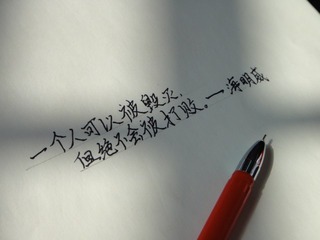 一个人可以被毁灭,
但绝不会被打败。— 海明威